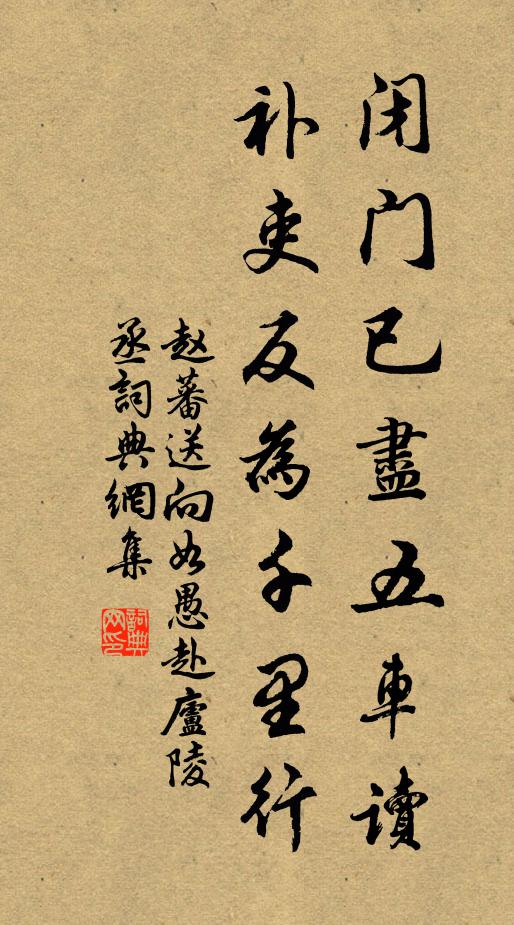 闭门已盡五車讀
补吏反為千里行
赵蕃送向如愚赴廬陵
丞詞典網集
詞典网印